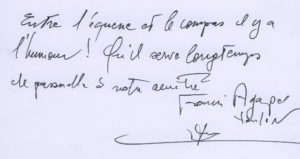 Entre l'équerre et le compas il y a
l'humour ! Qu'il serve longtemps
de passerelle à notre amitié
Agapes